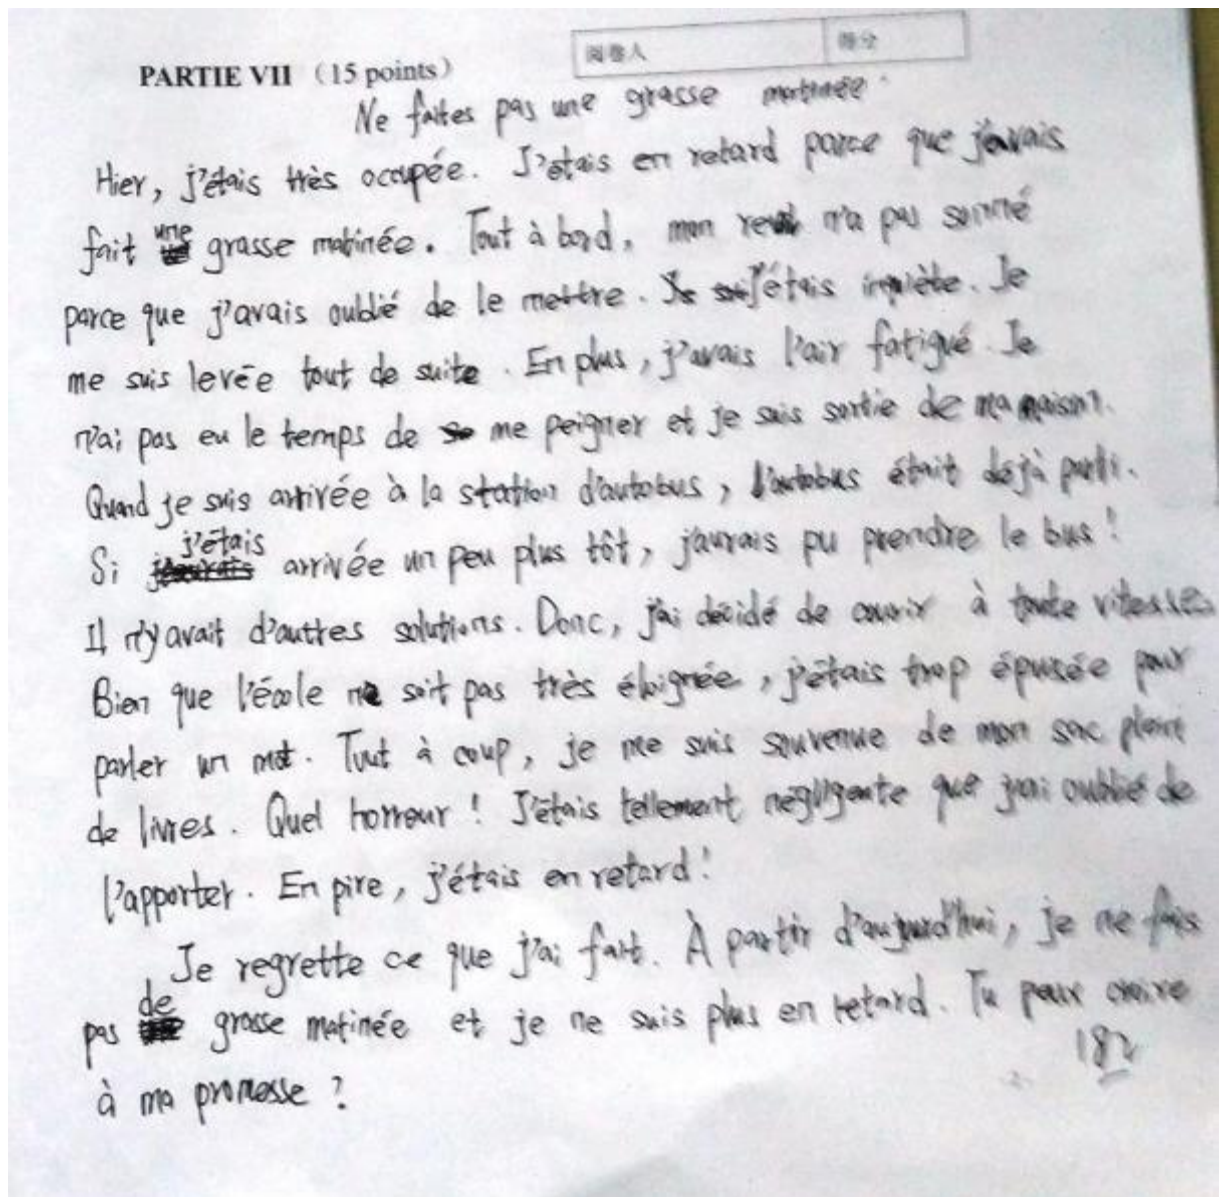 阅卷人 得分
PARTIE VII (15 points)
Ne faites pas une grasse matinée.
Hier, j'étais très occupée. J'étais en retard parce que j'avais
fait une grasse matinée. Tout à bord, mon n'a pas sonné
parce que j'avais oublié de le mettre. J'étais inquiète. Je
me suis levée tout de suite. En plus, j'avais l'air fatigué. Je
n'ai pas eu le temps de me peigner et je suis sortie de ma maison.
Quand je suis arrivée à la station d'autobus, l'autobus était déjà parti.
Si j'étais arrivée un peu plus tôt, j'aurais pu prendre le bus !
Il n'y avait d'autres solutions. Donc, j'ai décidé de courir à toute vitesses
Bien que l'école ne soit pas très éloignée, j'étais trop épusée pour
parler un mot. Tout à coup, je me suis souvenue de mon sac plein
de livres. Quel horreur ! J'étais tellement négligente que j'ai oublié de
l'apporter. En pire, j'étais en retard !
Je regrette ce que j'ai fait. À partir d'aujourd'hui, je ne fais
pas de grasse matinée et je ne suis plus en retard. Tu peux croire
à ma promesse ?
182